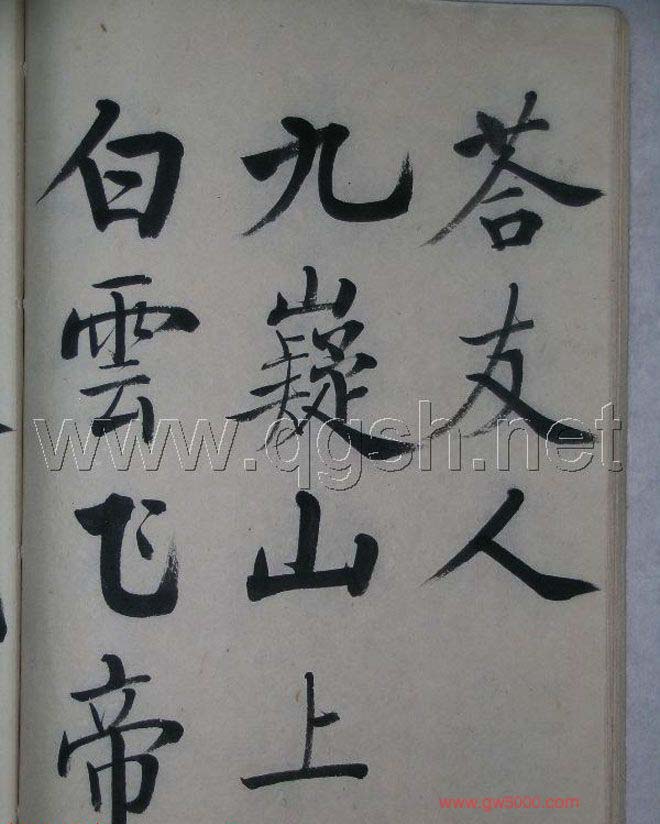 荅友人
九嶷山上
白雲飞帝
www.qgsh.net
www.gw5000.com